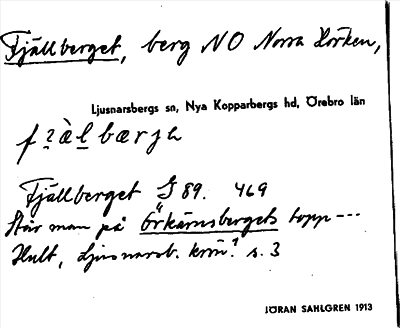 Fjällberget, berg NO Norra Hörken,
Ljusnarsbergs sn, Nya Kopparbergs hd, Örebro län
Fjällberget J 89. 469
Står man på Örkärnsbergets topp ---
Hult, Ljusnarsb. krön. s. 3
JÖRAN SAHLGREN 1913